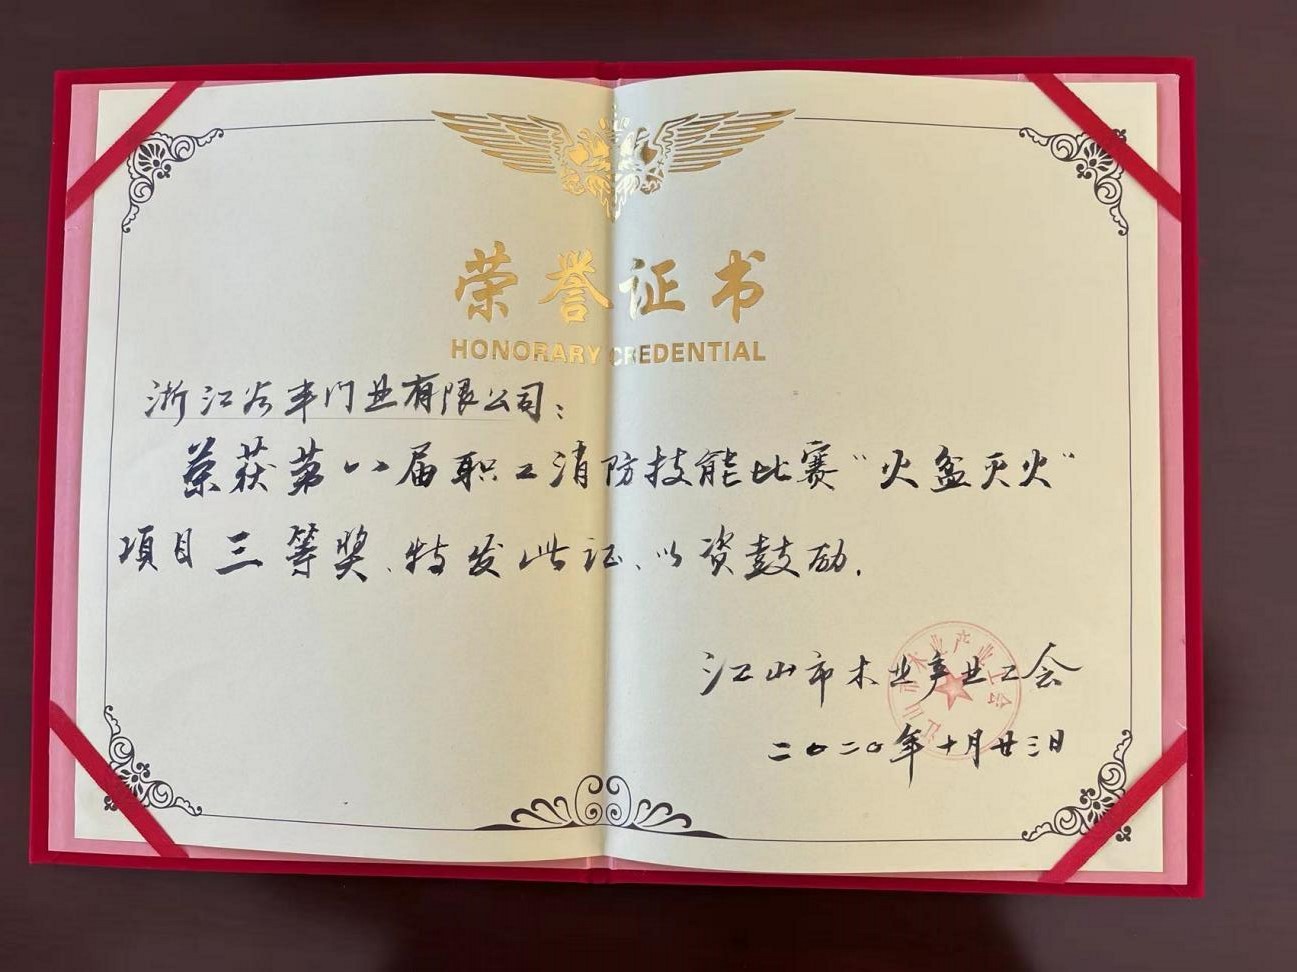 荣誉证书
HONORARY CREDENTIAL
浙江谷丰门业有限公司：
荣获第八届职工消防技能比赛“火盆灭火”
項目三等奖、特发此证、以资鼓励.
江山市木业产业工会
二〇二〇年十月廿三日
江山市木业产业工会